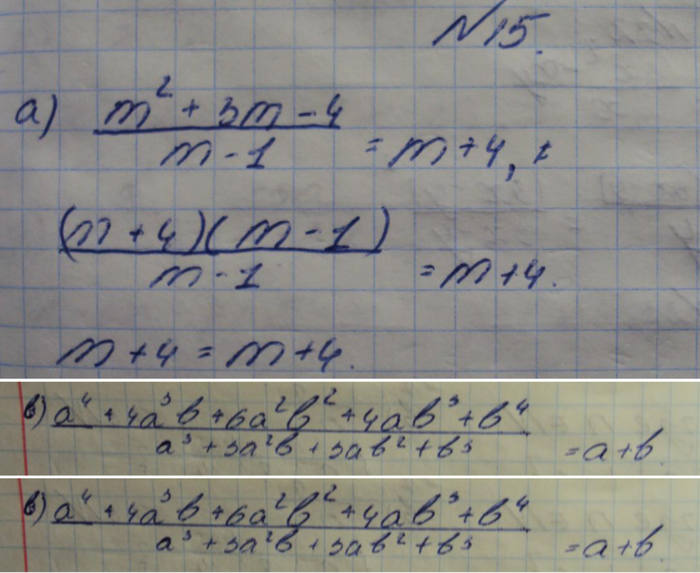 №15.
а) (m² + 3m - 4)/(m - 1) = m + 4,
((m + 4)(m - 1))/(m - 1) = m + 4.
m + 4 = m + 4.
в) (a⁴ + 4a³b + 6a²b² + 4ab³ + b⁴)/(a³ + 3a²b + 3ab² + b³) = a + b.
в) (a⁴ + 4a³b + 6a²b² + 4ab³ + b⁴)/(a³ + 3a²b + 3ab² + b³) = a + b.